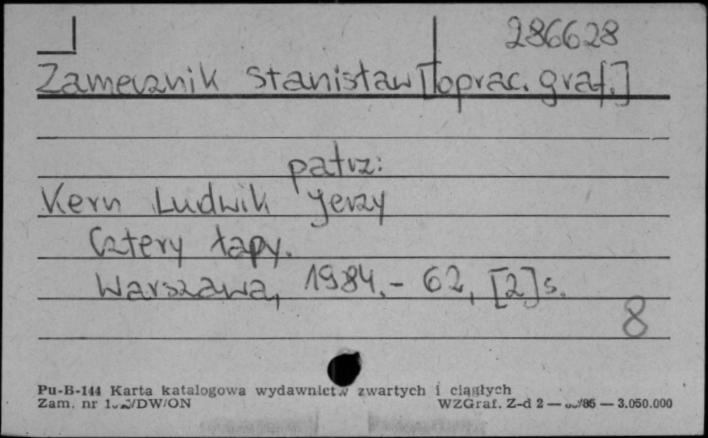 286628
Zamecznik Stanisław [oprac. graf.]
patrz:
Kern Ludwik Jerzy
Cztery łapy.
Warszawa, 1984. - 62, [2] s.
8
Pu-B-144 Karta katalogowa wydawnictw zwartych i ciągłych
Zam. nr /DW/ON WZGraf. Z-d 2 — /85 — 3.050.000